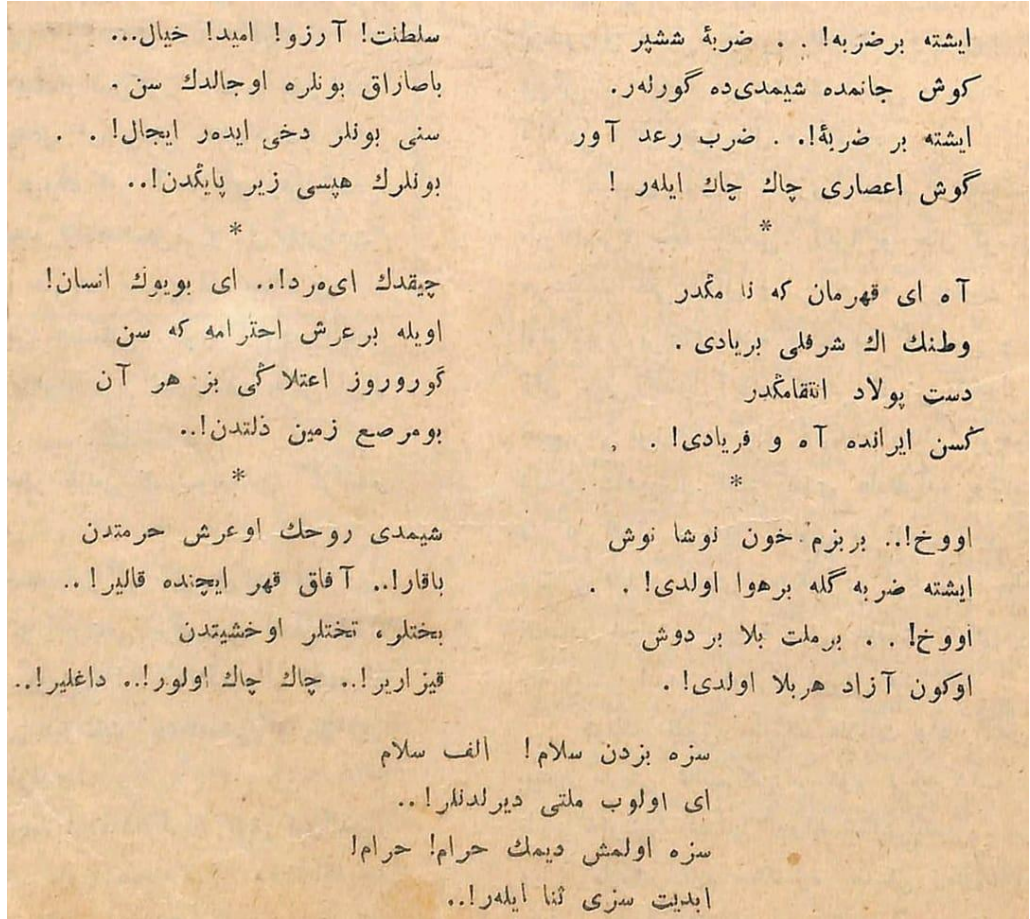 ايشته برضربه! . . ضربهٔ ششپر
كوش جانمده شيمدی‌ده گورلەر.
ايشته بر ضربهٔ!. . ضرب رعد آور
گوش اعصاری چاك چاك ايلەر !
*
آه ای قهرمان كه نا مڭدر
وطنك اك شرفلی بريادی .
دست پولاد انتقامڭدر
كسن ايرانده آه و فريادی! . .
*
اووخ!.. بربزم خون نوشا نوش
ايشته ضربه گله برهوا اولدی! . .
اووخ! . . برملت بلا بر دوش
اوكون آزاد هربلا اولدی! .
سلطنت! آرزو! اميد! خيال...
باصاراق بونلره اوجالدك سن .
سنی بونلر دخی ايدەر ايجال! . .
بونلرك هپسی زير پايڭدن!..
*
چيقدك ای‌مرد!.. ای بويوك انسان!
اويله برعرش احترامه كه سن
گوروروز اعتلا ڭی بز هر آن
بومرصع زمين ذلتدن!..
*
شيمدی روحك اوعرش حرمتدن
باقار!.. آفاق قهر ايچنده قالير! ..
بختلر، تختلر اوخشيتدن
قيزارير!.. چاك چاك اولور!.. داغلير!..
سزه بزدن سلام! الف سلام
ای اولوب ملتی ديرلدنلر! ..
سزه اولمش ديمك حرام! حرام!
ابديت سزی ثنا ايلەر!..